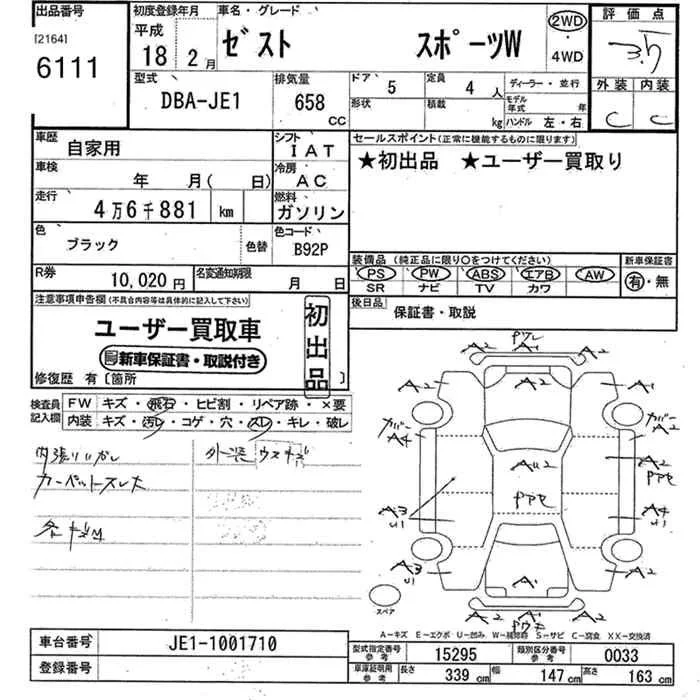 出品番号 初度登録年月 車名・グレード 評価点
[2164] 平成
6111 18年2月 ゼスト スポーツW 2WD・4WD 3.5
型式 排気量 ドア 5 定員 4人 ディーラー・並行 外装 内装
DBA-JE1 658 CC 形状 積載 kg モデル年式 年 C C
ハンドル 左・右
車歴 自家用 シフト IAT セールスポイント(正常に機能するものに限ります)
車検 年 月( 日) 冷房 AC ★初出品 ★ユーザー買取り
走行 4万6千881 km 燃料 ガソリン
色 ブラック 色替 色コード B92P
装備品 (純正品に限り○をつけてください) 新車保証書
R券 10,020円 名変通知期限 月 日 PS PW ABS エアB AW 有・無
SR ナビ TV カワ
注意事項申告欄(不具合内容等は具体的に記入して下さい) 後日品 保証書・取説
ユーザー買取車 初出品
新車保証書・取説付き
修復歴 有〔箇所 〕
検査員記入欄 FW キズ・飛石・ヒビ割・リペア跡・×要
内装 キズ・汚レ・コゲ・穴・スレ・キレ・破レ
カーペットスレ大
A2 A1 A2
A2 A2 A1
A4 A2
AU2 A2
PPP PPP
A3 A4
U1 U1
A3 A2
U1 A1
スペア A2 A2
A-キズ E-エクボ U-凹み W-補修跡 S-サビ C-腐食 XX-交換済
車台番号 JE1-1001710
型式指定番号 参考 15295 類別区分番号 参考 0033
登録番号 車庫証明用 参考 長さ 339 cm 幅 147 cm 高さ 163 cm